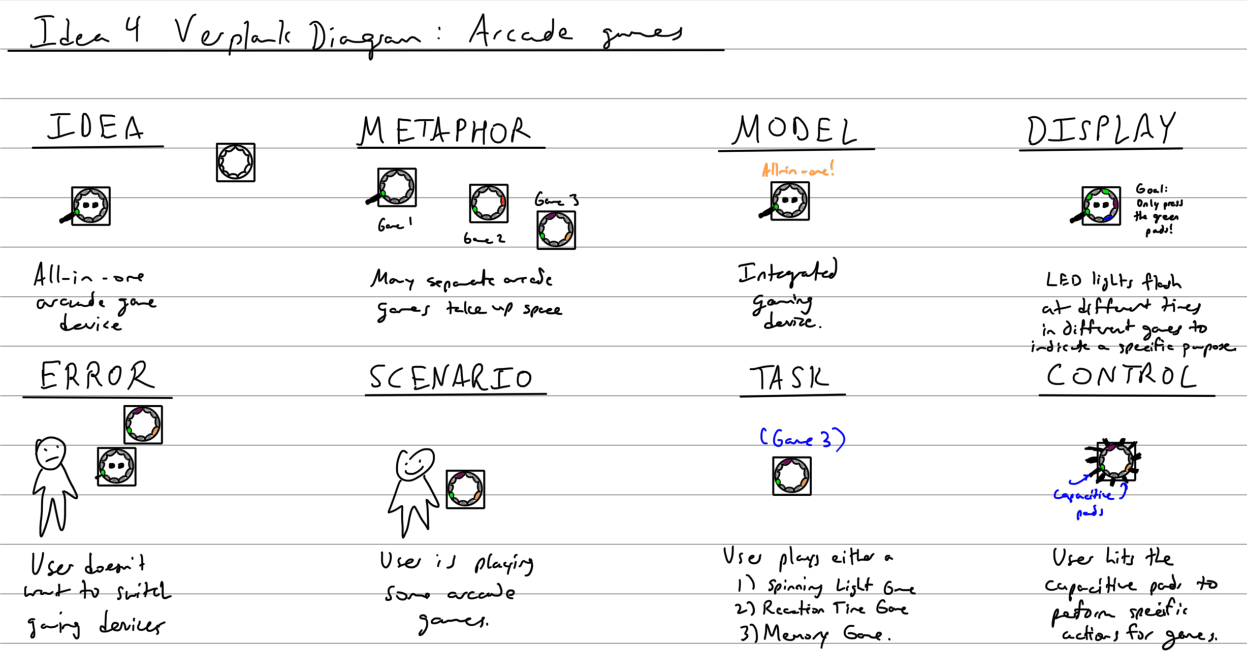 Idea 4 Verplank Diagram: Arcade games
IDEA
All-in-one
arcade game
device
METAPHOR
Game 1
Game 2
Game 3
Many separate arcade
games take up space
MODEL
All-in-one!
Integrated
gaming
device.
DISPLAY
Goal:
Only press
the green
pads!
LED lights flash
at different times
in different games to
indicate a specific purpose
ERROR
User doesn't
want to switch
gaming devices
SCENARIO
User is playing
some arcade
games.
TASK
(Game 3)
User plays either a
1) Spinning Light Game
2) Reaction Time Game
3) Memory Game.
CONTROL
Capacitive
pads
User hits the
capacitive pads to
perform specific
actions for games.